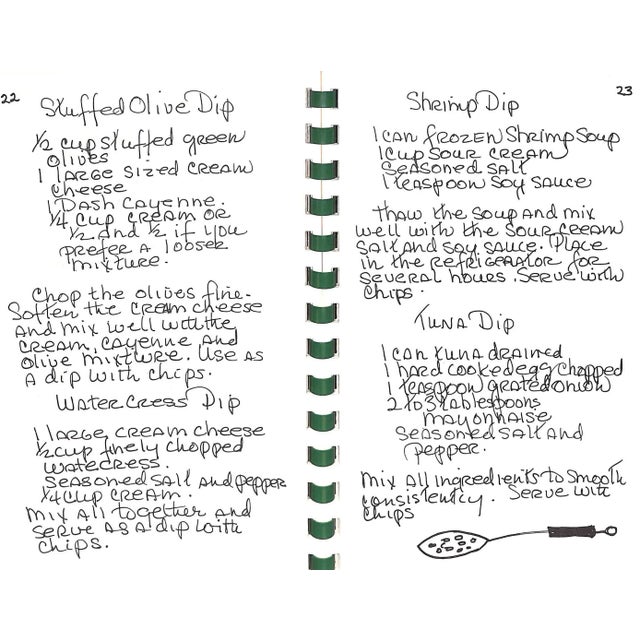 22
Stuffed Olive Dip
1/2 cup stuffed green
olives
1 large sized cream
cheese
1 Dash cayenne.
1/4 cup cream or
1/2 and 1/2 if you
prefer a looser
mixture.
Chop the olives fine.
Soften the cream cheese
and mix well with the
cream, cayenne and
olive mixture. Use as
a dip with chips.
Watercress Dip
1 large cream cheese
1/2 cup finely chopped
watercress.
Seasoned salt and pepper
1/4 cup cream.
Mix all together and
serve as a dip with
chips.
23
Shrimp Dip
1 can frozen Shrimp Soup
1 Cup Sour cream
Seasoned Salt
1 teaspoon Soy Sauce
Thaw the soup and mix
well with the sour cream
salt and soy sauce. Place
in the refrigerator for
several hours. Serve with
chips.
Tuna Dip
1 can tuna drained
1 hard cooked egg chopped
1 teaspoon grated onion
2 to 3 tablespoons
mayonnaise
Seasoned salt and
pepper.
Mix all ingredients to Smooth
consistency. Serve with
chips